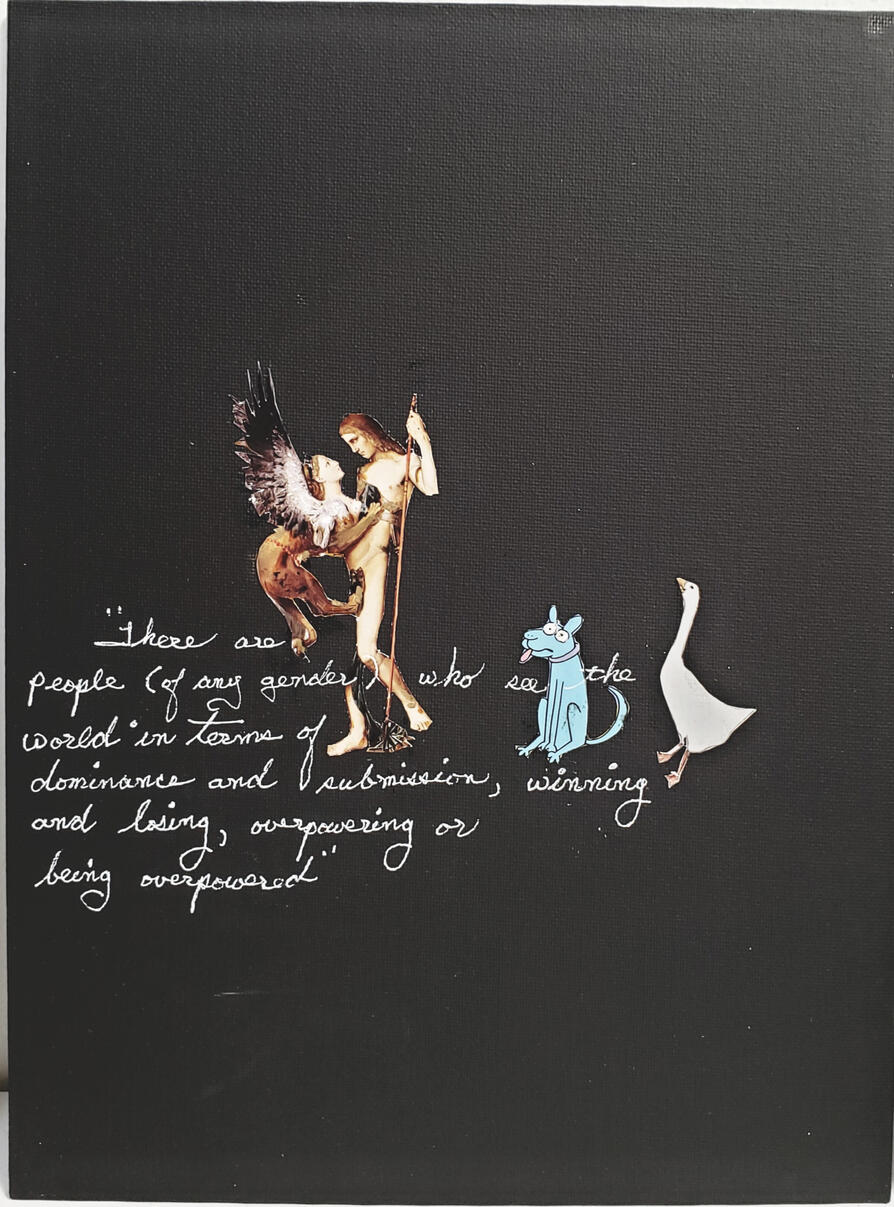 "There are
people (of any gender) who see the
world in terms of
dominance and submission, winning
and losing, overpowering or
being overpowered"